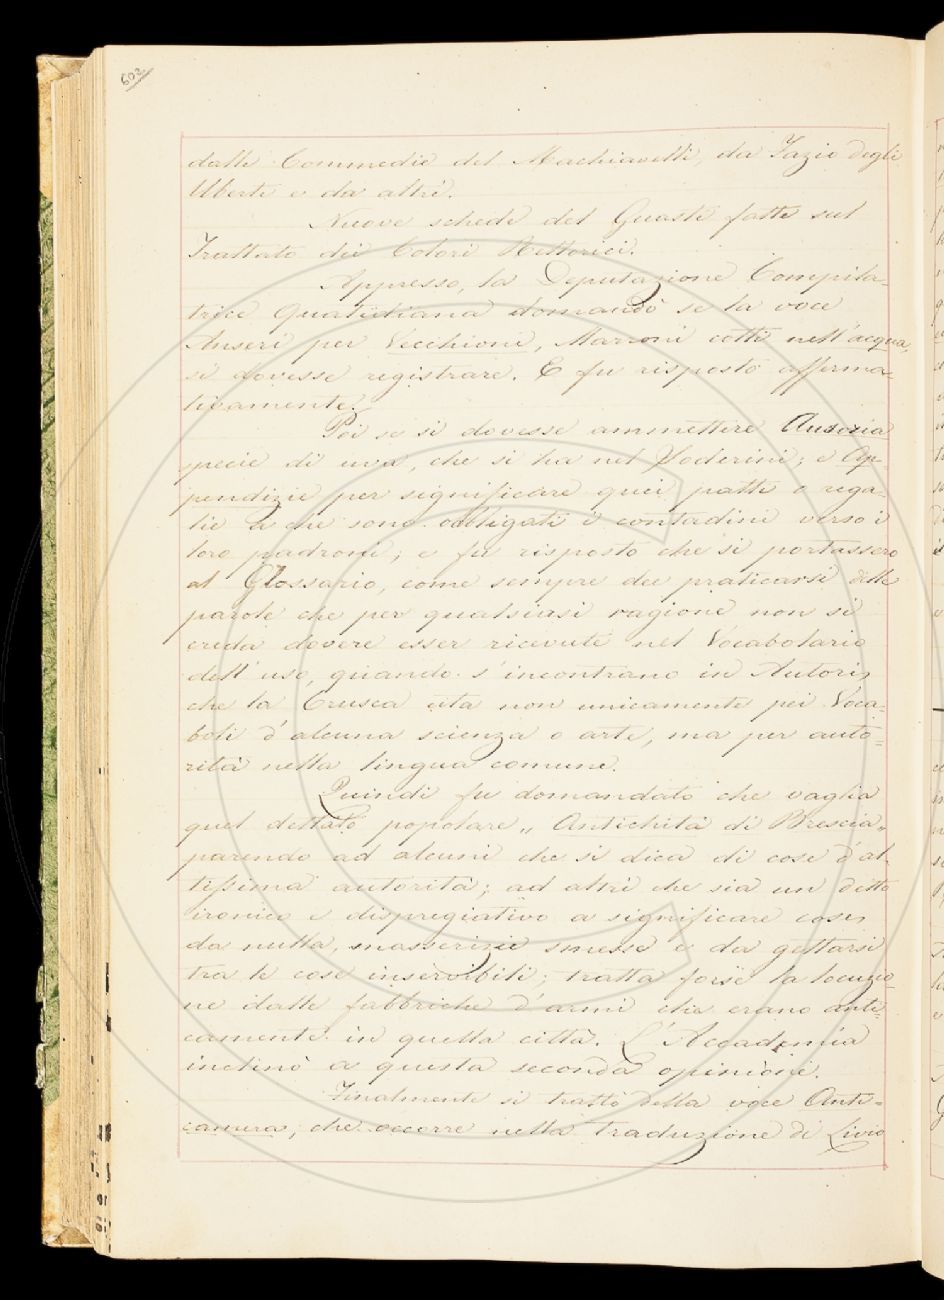 602
dalle Commedie del Machiavelli, da Fazio degli
Uberti e da altri.
Nuove schede del Guasti fatte sul
Trattato dei Colori Rettorici.
Appresso, la Deputazione Compila-
trice Quotidiana domandò se la voce
Anseri per Vecchioni, Marroni cotti nell'acqua,
si dovesse registrare. E fu risposto afferma-
tivamente.
Poi se si dovesse ammettere
specie di uva, che si ha nel Soderini; e Ap-
pendizie per significare quei patti o rega-
lie a che sono obbligati i contadini verso i
loro padroni; e fu risposto che si portassero
al Glossario, come sempre dee praticarsi delle
parole che per qualsiasi ragione non si
creda dovere esser ricevute nel Vocabolario
dell'uso, quando s'incontrano in Autori,
che la Crusca cita non unicamente pei Voca-
boli d'alcuna scienza o arte, ma per auto=
rità nella lingua comune.
Quindi fu domandato che vaglia
quel dettato popolare „ Antichità di Brescia„
parendo ad alcuni che si dica di cose d'al-
tissima autorità; ad altri che sia un detto
ironico e dispregiativo a significare cose
da nulla, masserizie smesse e da gettarsi
tra le cose inservibili; tratta forse la locuzio-
ne dalle fabbriche d'armi che erano anti=
camente in quella città. L'Accademia
inclinò a questa seconda opinione.
Finalmente si trattò della voce Anti=
camera, che occorre nella traduzione di Livio